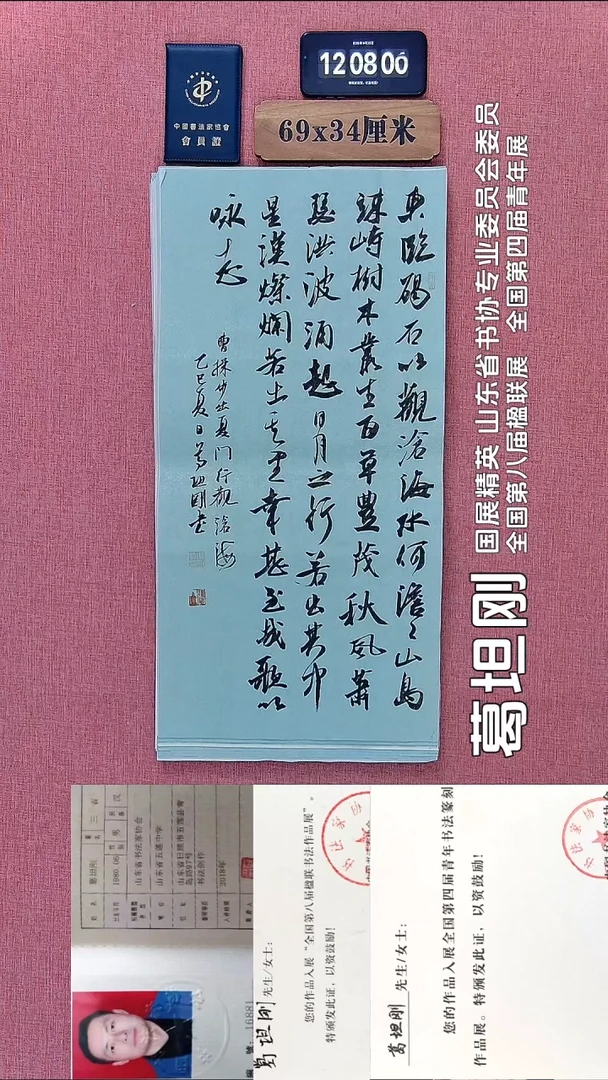 中國書法家協會
會員證
12 08 00
69x34厘米
東臨碣石以觀滄海水何澹々山島
竦峙樹木叢生百草豐茂秋風蕭
瑟洪波涌起日月之行若出其中
星漢燦爛若出其里幸甚至哉歌以
咏志
曹操步出夏门行觀滄海
乙巳夏日葛坦剛书
葛坦刚
国展精英 山东省书协专业委员会委员
全国第八届楹联展 全国第四届青年展
山东省书法家协会
山东省五莲中学
书法创作
2018年
16881
葛坦刚 先生/女士:
您的作品入展“全国第八届楹联书法作品展”。
特颁发此证,以资鼓励!
葛坦刚 先生/女士:
您的作品入展全国第四届青年书法篆刻
作品展。特颁发此证,以资鼓励!